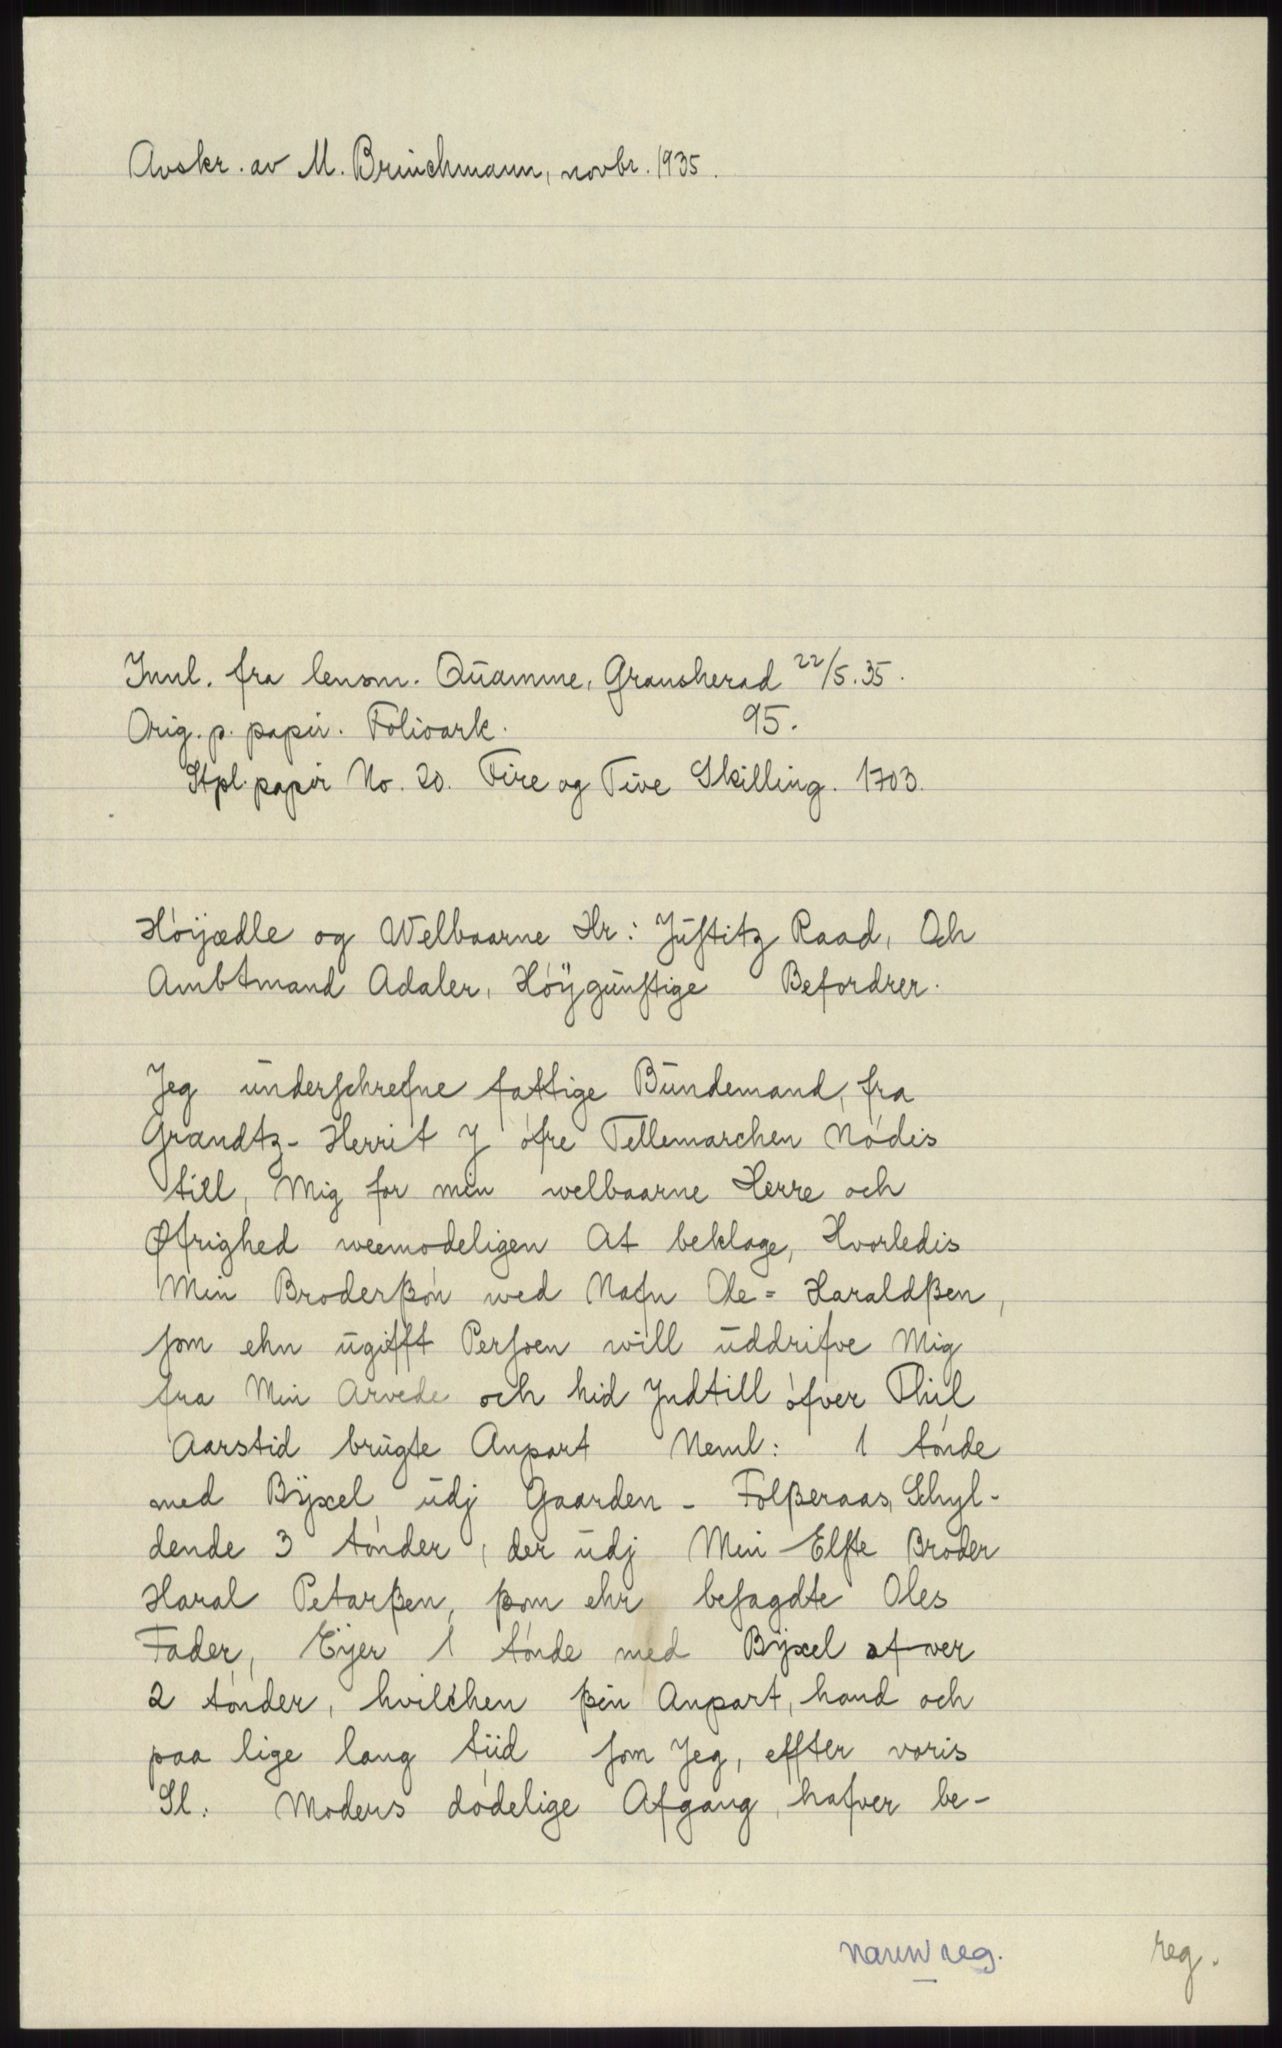 Avskr. av M. Brinchmann, novbr. 1935.
Innl. fra lensm. Quamme, Gransherad 22/5.35.
Orig. p. papir. Folioark. 95.
Stpl. papir No. 20. Fire og Tive Skilling. 1703.
Höÿædle og Welbaarne Hr: Justitz Raad, Och
Ambtmand Adaler, Höÿgunstige Befordrer.
Jeg underschrefne fattige Bundemand, fra
Grandtz-Herrit J öfre Tellemarchen Nödis
till, Mig for min welbaarne Herre och
Øfrighed weemodeligen At beklage, Hvorledis
Min Broderßön wed Nafn Ole = Haraldßen,
som ehn ugifft Persoen will uddrifve Mig
fra Min Arvede och hid Jndtill öfver Thil
Aarstid brugte Anpart Neml: 1 tönde
med Bÿxel udj Gaarden - Folßeraas, Schyl-
dende 3 tönder, der udj Min Elste Broder
Haral Petarßen, ßom ehr besagdte Oles
Fader, Eÿer 1 tönde med Bÿxel afver
2 tönder, hvilchen ßin Anpart, hand och
paa lige lang tiid som Jeg, effter voris
Sl: Moders dödelige Afgang, hafver be-
navnreg. reg.